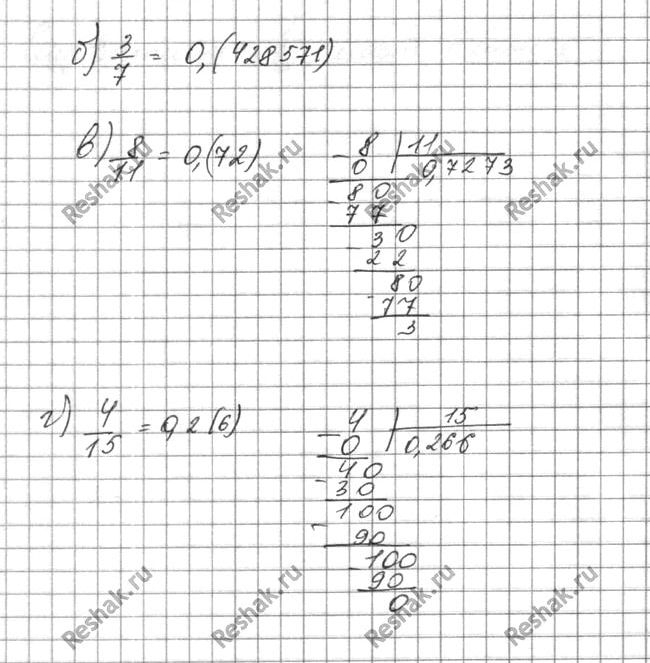 б) 3/7 = 0,(428571)
в) 8/11 = 0,(72)
- 8 | 11
0 0,7273
- 80
77
- 30
22
80
- 77
3
г) 4/15 = 0,2(6)
- 4 | 15
0 0,266
- 40
30
100
- 90
- 100
90
0
Reshak.ru Reshak.ru Reshak.ru Reshak.ru
Reshak.ru Reshak.ru Reshak.ru Reshak.ru